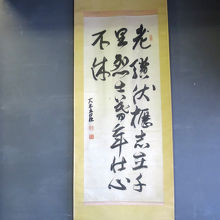 老驥伏櫪志在千
里烈士暮年壮心
不休